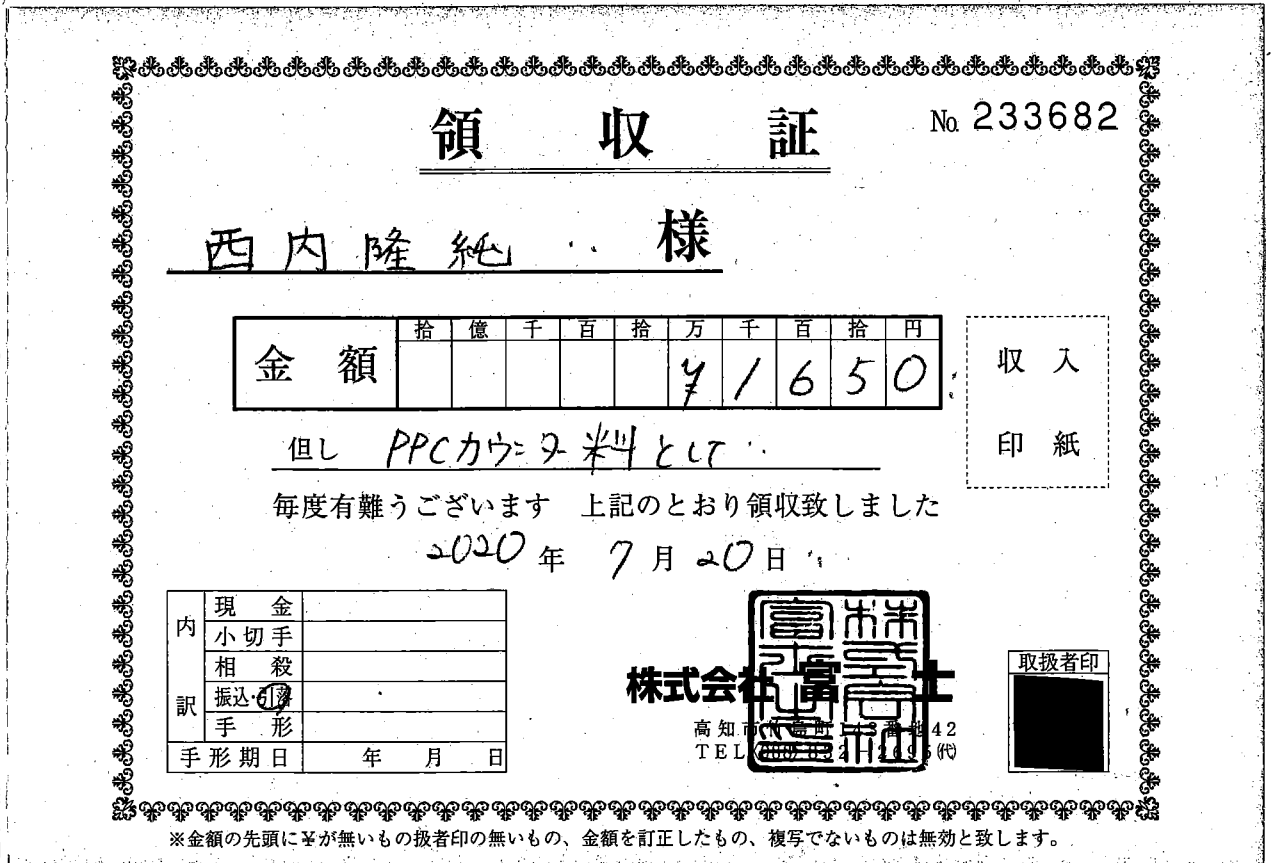 領収証
No. 233682
西内隆純 様
拾 億 千 百 拾 万 千 百 拾 円
金額 ¥1650
収入
印紙
但し PPCカウンター料として
毎度有難うございます 上記のとおり領収致しました
2020年 7月20日
内訳
現金
小切手
相殺
振込・引落
手形
手形期日 年 月 日
株式会社 富士
高知市 島町 番地42
TEL
(代)
取扱者印
※金額の先頭に¥が無いもの扱者印の無いもの、金額を訂正したもの、複写でないものは無効と致します。